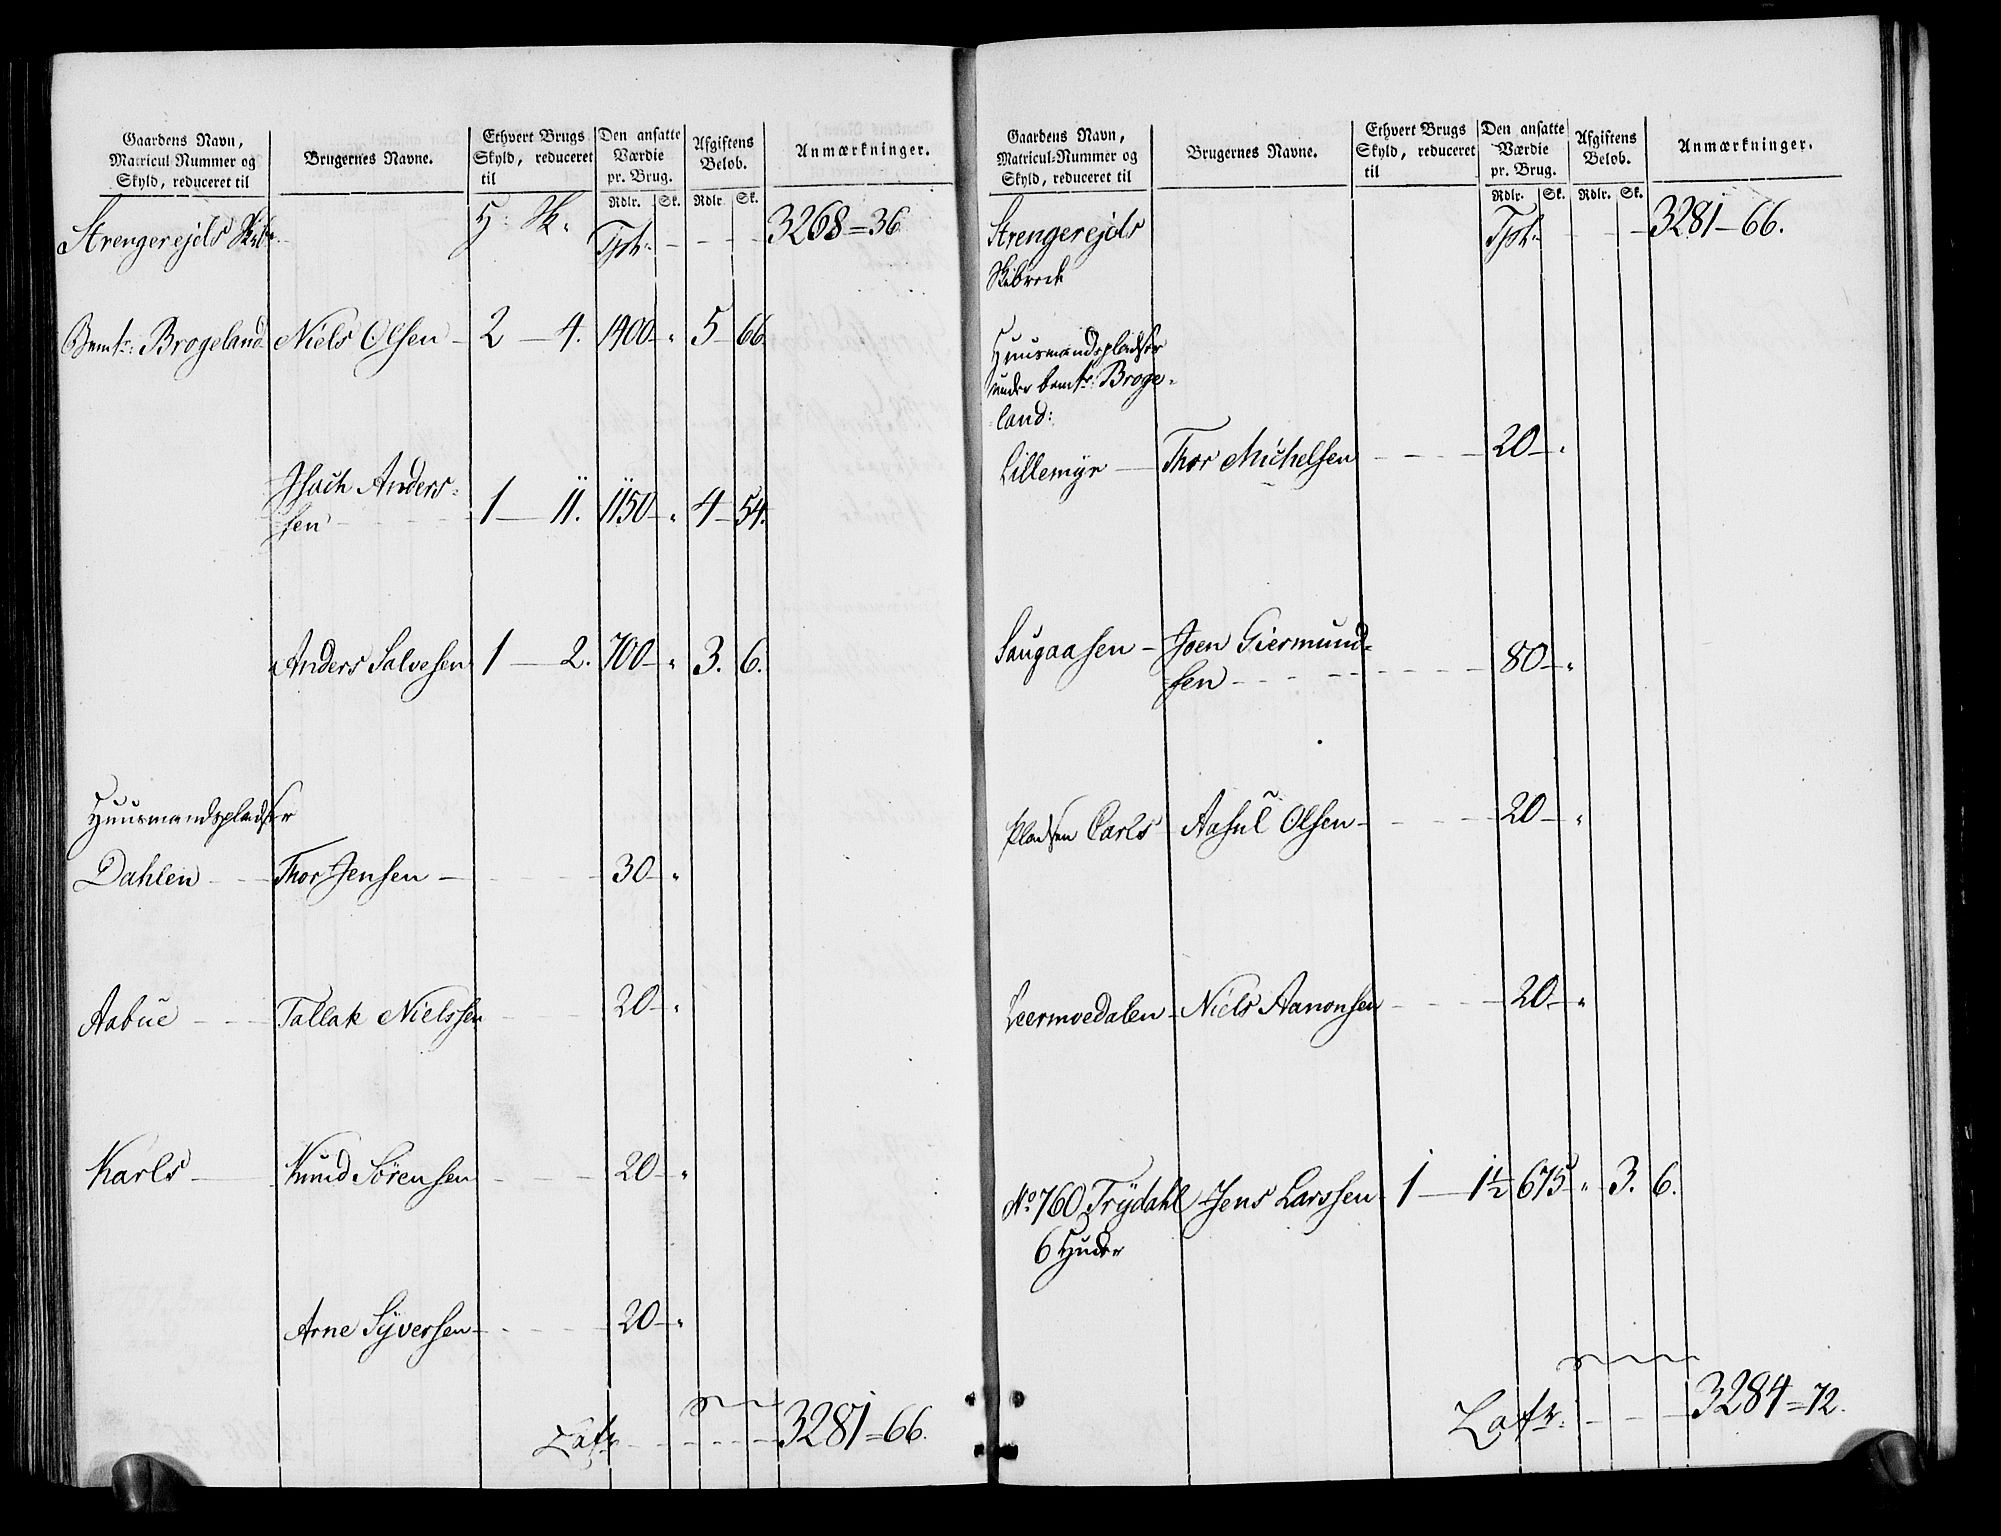 Gaardens Navn,
Matricul-Nummer og
Skyld, reduceret til
Brugernes Navne.
Ethvert Brugs
Skyld, reduceret
til
Den ansatte
Værdie
pr. Brug.
Rdlr. Sk.
Afgiftens
Beløb.
Rdlr. Sk.
Anmærkninger.
Strengerejds Skibr. H: Sk. Tpt: 3268=36.
Bemte: Brogeland Niels Olsen 2 4. 1400 " 5 66.
Isach Anders-
sen 1 11. 1150 " 4 54.
Anders Salvesen 1 2. 700 " 3. 6.
Huusmandspladser
Dahlen Thor Jensen 30 "
Aabue Tallak Nielssen 20 "
Karls Knud Sørensen 20 "
Arne Syversen 20 "
Lats 3281=66.
Gaardens Navn,
Matricul-Nummer og
Skyld, reduceret til
Brugernes Navne.
Ethvert Brugs
Skyld, reduceret
til
Den ansatte
Værdie
pr. Brug.
Rdlr. Sk.
Afgiftens
Beløb.
Rdlr. Sk.
Anmærkninger.
Strengerejds Tpt: 3281=66.
Skibrede
Huusmandspladser
under bemte: Broge-
land:
Lillemyr Thor Michelsen 20 "
Saugaasen Joen Giermund-
sen 80 "
Pladsen Carls Aasul Olsen 20 "
Leermoedalen Niels Aanonsen 20 "
No 760 Trydahl Jens Larssen 1 1½ 675 " 3. 6.
6 Huder
Lats: 3284=72.